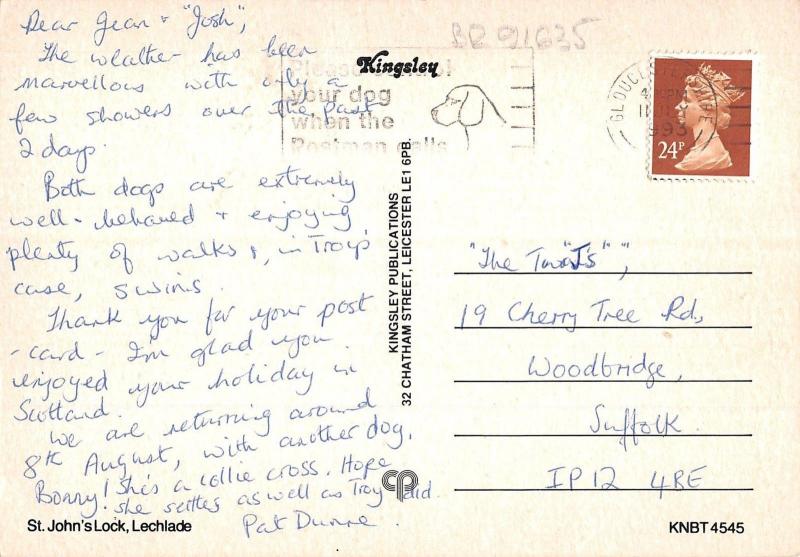 Dear Jean + "Josh",
The weather has been
marvellous with only a
few showers over the past
2 days.
Both dogs are extremely
well-behaved + enjoying
plenty of walks &, in Troy's
case, swims.
Thank you for your post
-card - I'm glad you
enjoyed your holiday in
Scotland.
We are returning around
8th August, with another dog,
Bonny! She's a collie cross. Hope
she settles as well as Troy did.
Pat Dunne.
St. John's Lock, Lechlade
BR 91635
Kingsley
your dog
when the
Postman calls
KINGSLEY PUBLICATIONS
32 CHATHAM STREET, LEICESTER LE1 6PB.
cp
GLOUCESTERSHIRE
1993
24P
"The Two "J's"",
19 Cherry Tree Rd,
Woodbridge,
Suffolk.
IP12 4BE
KNBT 4545